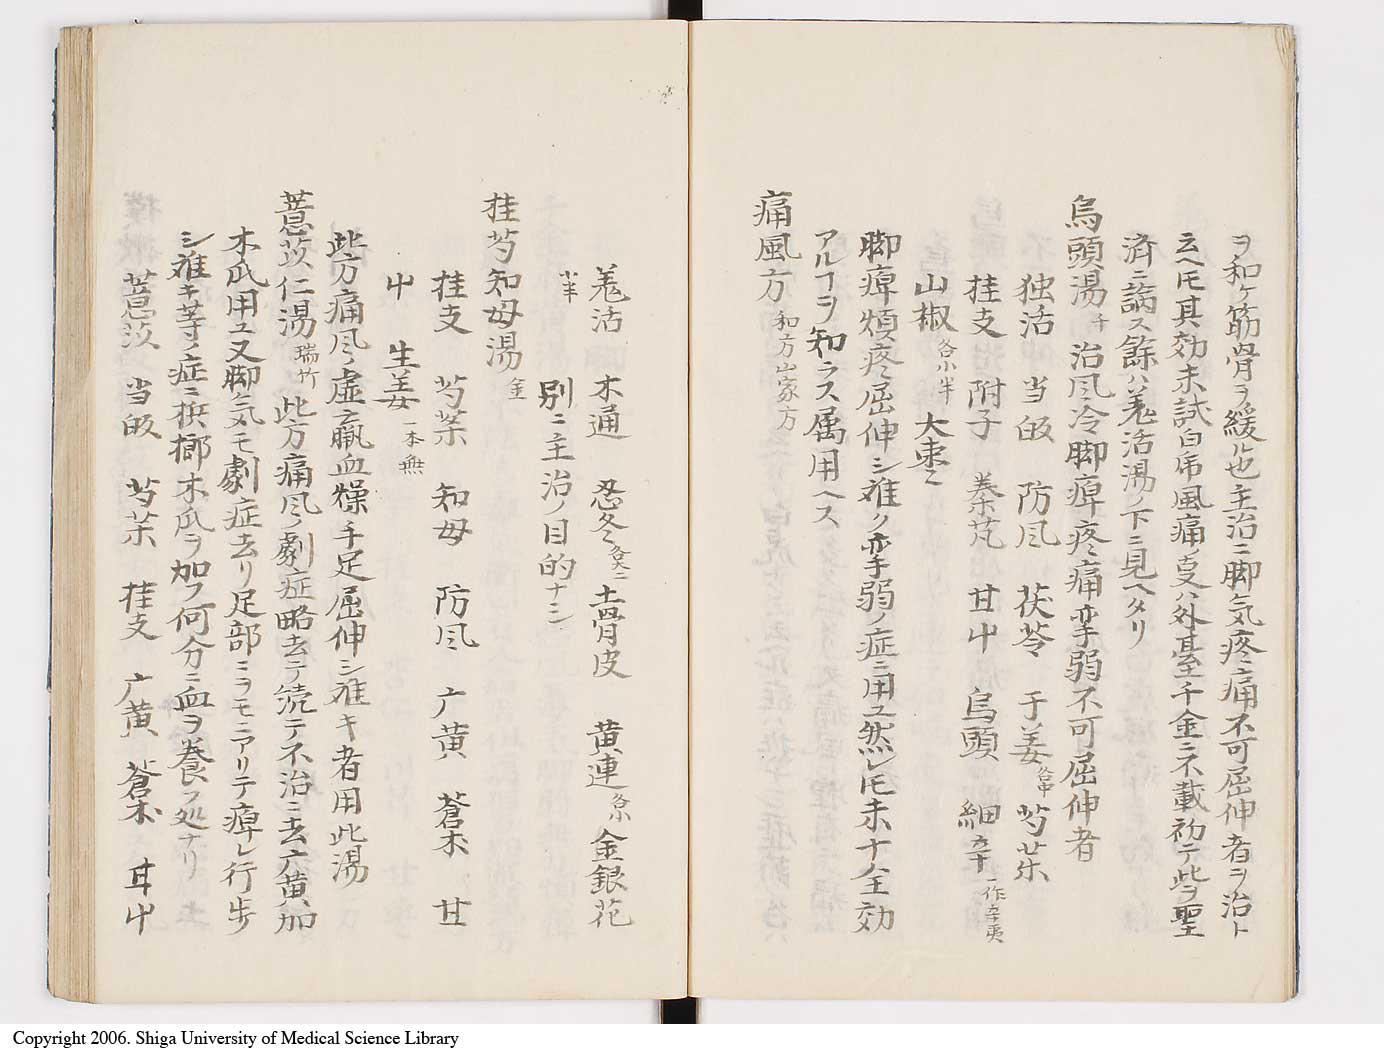 ヲ和ケ筋骨ヲ緩ル也主治ニ脚気疼痛不可屈伸者ヲ治ト
云ヘ𪜈其効未試白虎風痛ノ㕝ハ外臺千金ニ不載初テ此ヲ聖
済ニ論ス餘ハ羗活湯ノ下ニ見ヘタリ
烏頭湯千 治凮冷脚痺疼痛挛弱不可屈伸者
独活 当皈 防凮 茯苓 于姜各中 芍薬
桂支 附子 秦芃 甘中 烏頭 細辛 一作辛夷
山椒各小半 大棗二
脚痺煩疼屈伸シ难ク挛弱ノ症ニ用ユ然レ𪜈未十全効
アルヿヲ知ラス属用ヘス
痛風方 和方山家方
羗活 木通 忍冬各大二 土骨皮 黄連各小 金銀花
小半 別ニ主治ノ目的ナシ
桂芍知母湯金
桂支 芍薬 知母 防凮 广黄 蒼朮 甘
中 生姜一本無
此方痛凮ノ虚羸血燥手足屈伸シ难キ者用此湯
薏苡仁湯瑞竹 此方痛凮ノ劇症略去テ続テ不治ニ去广黄加
木瓜用ユ又脚気モ劇症去リ足部ニラモニアリテ痺レ行歩
シ难キ等ノ症ニ梹榔木瓜ヲ加フ何分ニ血ヲ養フ処ナリ
薏苡 当皈 芍薬 桂支 广黄 蒼朮 甘中
Copyright 2006. Shiga University of Medical Science Library